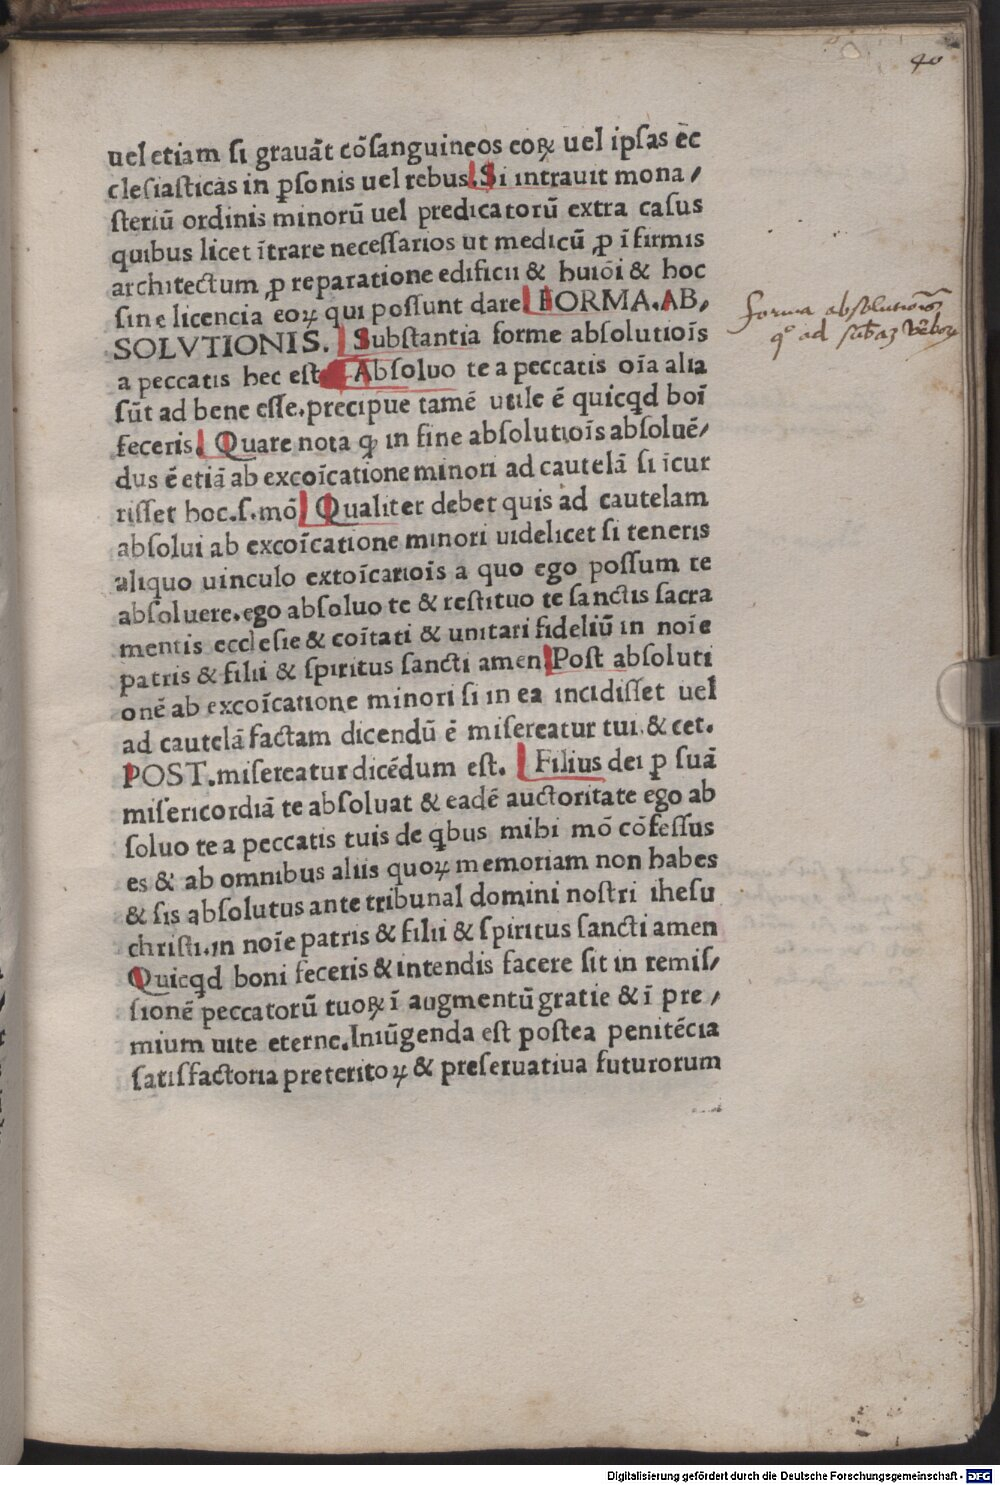 40
uel etiam si grauāt cōsanguineos eoꝝ uel ipsas ec̄
clesiasticas in ꝑsonis uel rebus. Si intrauit mona/
steriū ordinis minorū uel predicatorū extra casus
quibus licet ītrare necessarios ut medicū ꝓ īfirmis
architectum ꝓ reparatione edificii & huiōi & hoc
sine licencia eoꝝ qui possunt dare FORMA.AB,
SOLVTIONIS. Substantia forme absolutiōīs
a peccatis hec est. Absoluo te a peccatis oīa alia
sūt ad bene esse.precipue tamē utile ē quicqd boī
feceris. Quare nota ꝙ in fine absolutiōis absoluē/
dus ē etiā ab excoīcatione minori ad cautelā si īcur
risset hoc.s.mō Qualiter debet quis ad cautelam
absolui ab excoīcatione minori uidelicet si teneris
aliquo uinculo extoīcatiōis a quo ego possum te
absoluere.ego absoluo te & restituo te sanctis sacra
mentis ecclesie & coītati & unitati fideliū in noīe
patris & filii & spiritus sancti amen Post absoluti
onē ab excoīcatione minori si in ea incidisset uel
ad cautelā factam dicendū ē misereatur tui.& cet.
POST.misereatur dicēdum est. Filius dei ꝑ suā
misericordiā te absoluat & eadē auctoritate ego ab
soluo te a peccatis tuis de qbus mihi mō cōfessus
es & ab omnibus aliis quoꝝ memoriam non habes
& sis absolutus ante tribunal domini nostri ihesu
christi.in noīe patris & filii & spiritus sancti amen
Quicqd boni feceris & intendis facere sit in remis/
sionē peccatorū tuoꝝ ī augmentū gratie & ī pre/
mium uite eterne.Iniūgenda est postea penitēcia
satisfactoria preteritoꝝ & preseruatiua futurorum
forma absolutionis
qº ad verboꝝ
Digitalisierung gefördert durch die Deutsche Forschungsgemeinschaft - DFG